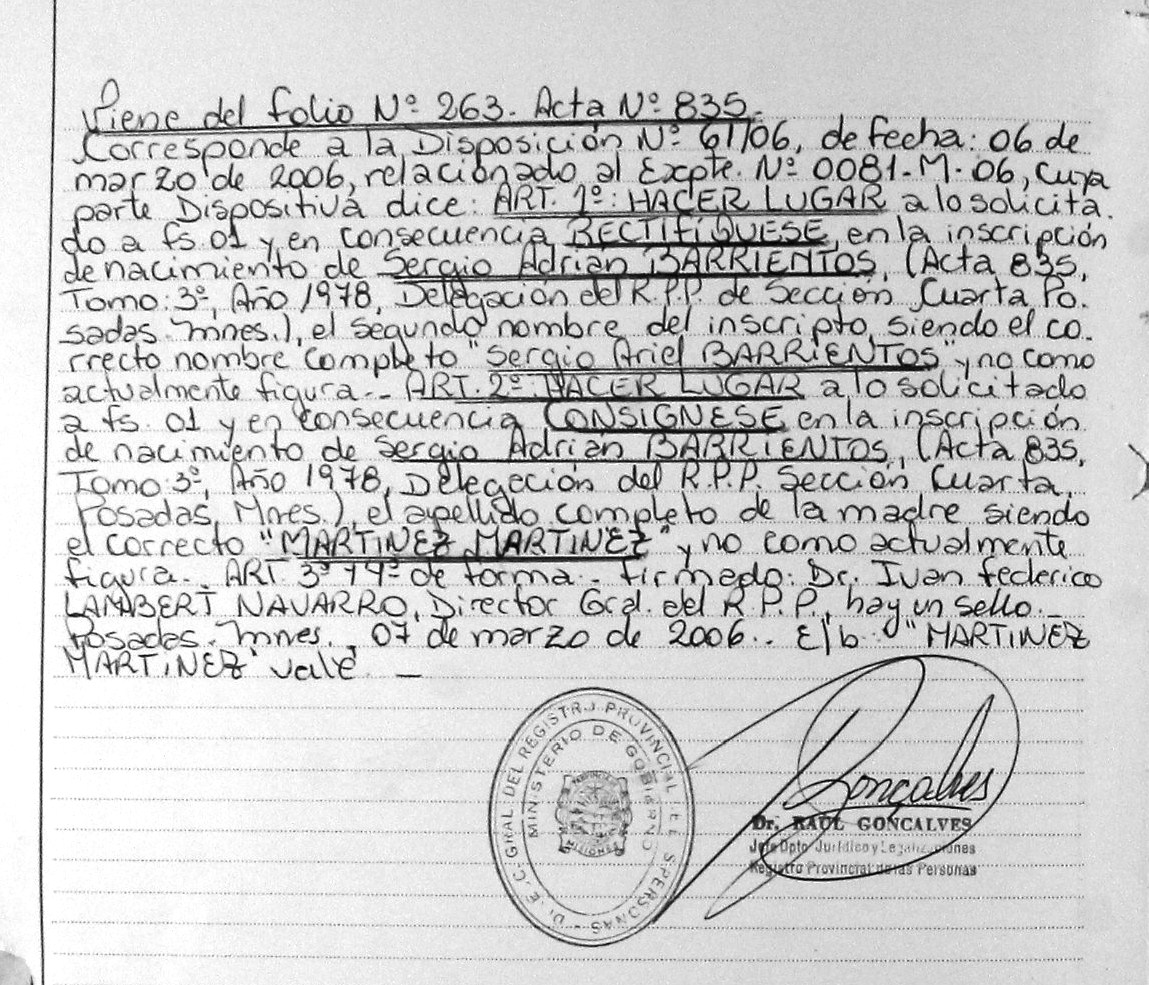 Viene del folio Nº 263. Acta Nº 835.-
Corresponde a la Disposición Nº 61/06, de fecha: 06 de
marzo de 2006, relacionado al Expte. Nº 0081-M-06, cuya
parte Dispositiva dice: ART. 1º: HACER LUGAR a lo solicita.
do a fs. 01 y, en consecuencia RECTIFIQUESE, en la inscripción
de nacimiento de Sergio Adrian BARRIENTOS, (Acta 835,
Tomo: 3º, Año 1978, Delegación del R.P.P. de Sección Cuarta Po.
sadas. Mnes.), el segundo nombre del inscripto, siendo el co.
rrecto nombre completo "Sergio Ariel BARRIENTOS" y no como
actualmente figura.- ART. 2º: HACER LUGAR a lo solicitado
a fs. 01 y en consecuencia CONSIGNESE en la inscripción
de nacimiento de Sergio Adrian BARRIENTOS, (Acta 835,
Tomo: 3º, Año 1978, Delegación del R.P.P. Sección Cuarta,
Posadas, Mnes.), el apellido completo de la madre siendo
el correcto "MARTINEZ MARTINEZ" y no como actualmente
figura.- ART. 3º Y 4º de forma.- firmado: Dr. Ivan federico
LAMBERT NAVARRO, Director Gral. del R.P.P. hay un sello.-
Posadas. Mnes., 07 de marzo de 2006.- E/b: "MARTINEZ
MARTINEZ" vale.-
DIREC. GRAL. DEL REGISTRO PROVINCIAL DE LAS PERSONAS
MINISTERIO DE GOBIERNO
PROVINCIA
MISIONES
Goncalves
Dr. RAUL GONCALVES
Jefe Dpto Jurídico y Legalizaciones
Registro Provincial de las Personas